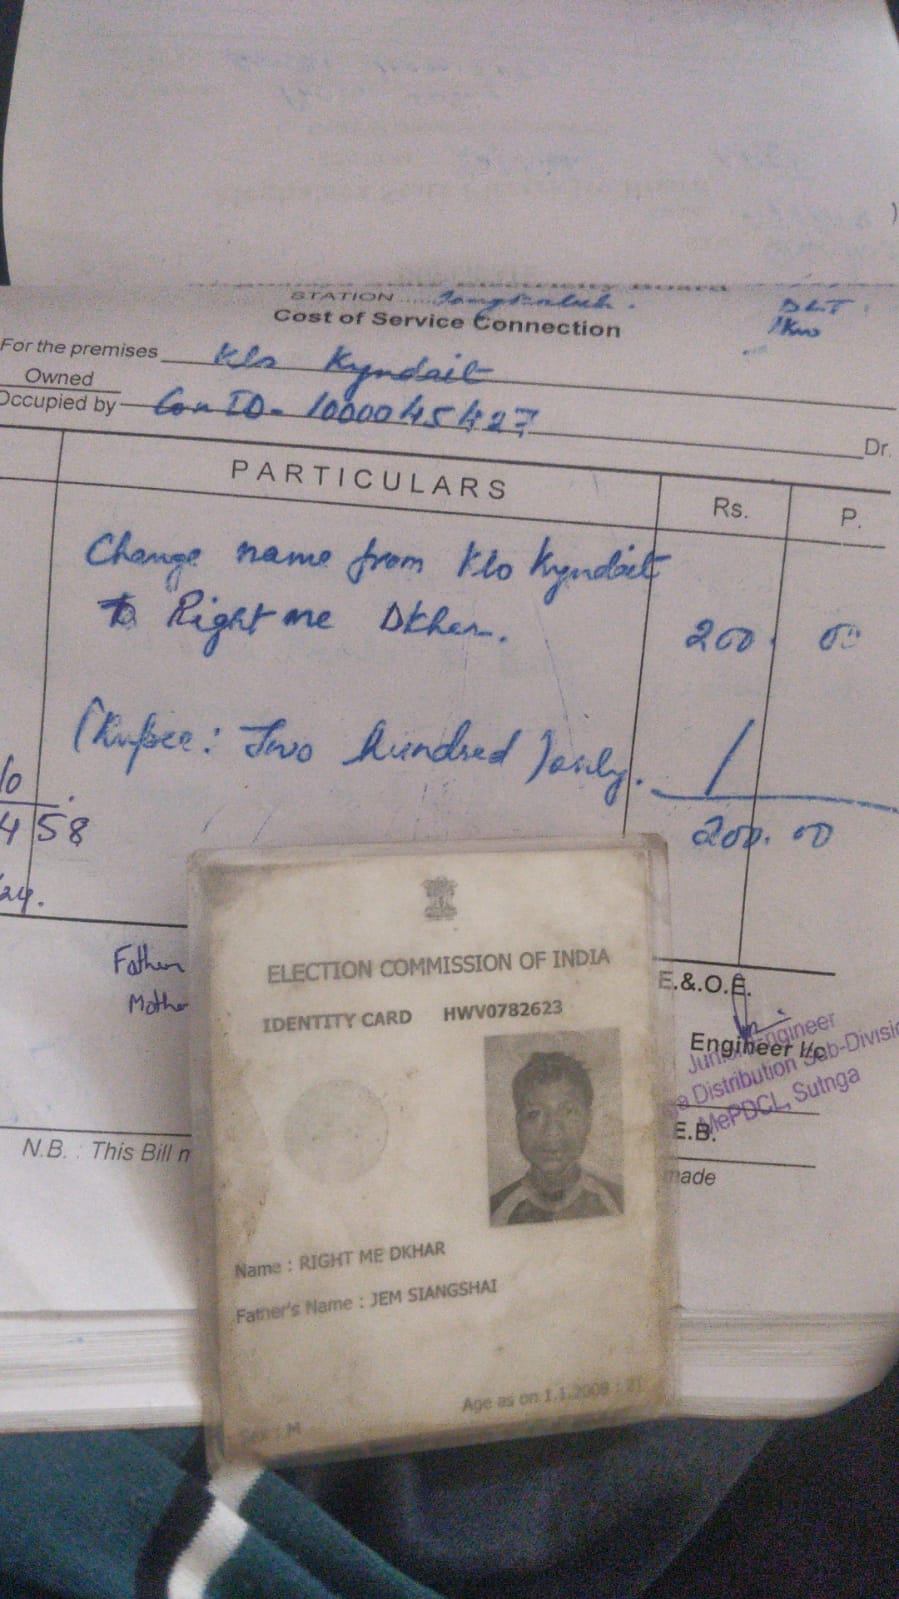 STATION
DLT
1kw
Cost of Service Connection
For the premises Klo Kyndait
Owned
Occupied by Con ID- 1000045427
Dr.
PARTICULARS Rs. P.
Change name from Klo Kyndait
To Right me Dkhar. 200. 00
(Rupee: Two hundred) only.
458
200.00
24.
Father
Mother
E.&.O.E.
Engineer I/c
Junior Engineer
Distribution Sub-Division
MePDCL, Sutnga
E.B.
N.B. : This Bill
made
ELECTION COMMISSION OF INDIA
IDENTITY CARD HWV0782623
Name : RIGHT ME DKHAR
Father's Name : JEM SIANGSHAI
Age as on 1.1.2008 : 21
Sex : M